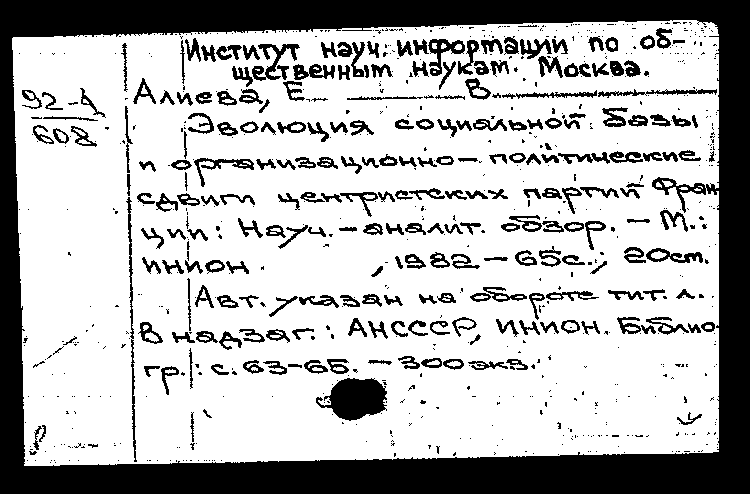 Институт науч. информации по об-
щественным наукам. Москва.
92-А
608
Алиева, Е В
Эволюция социальной базы
и организационно-политические
сдвиги центристских партий Фран
ции: Науч.-аналит. обзор. - М.:
ИНИОН , 1982 - 65с.; 20см.
Авт. указан на обороте тит. л.
В надзаг.: АНСССР, ИНИОН. Библио-
гр.: с. 63-65. - 300экз.